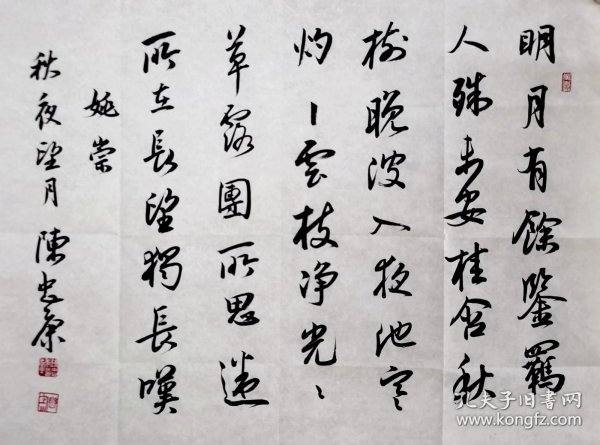 明月有餘鑒羈
人殊未安桂含秋
樹晚波入夜池寒
灼〻雲枝净光〻
草露團所思迷
所在長望獨長嘆
姚崇
秋夜望月 陳忠康
孔夫子旧书网
www.kongfz.com